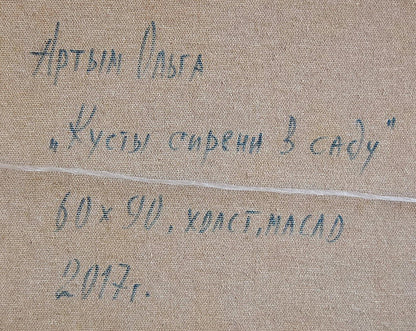 Артым Ольга
„Кусты сирени в саду"
60 х 90, холст, масло
2017г.